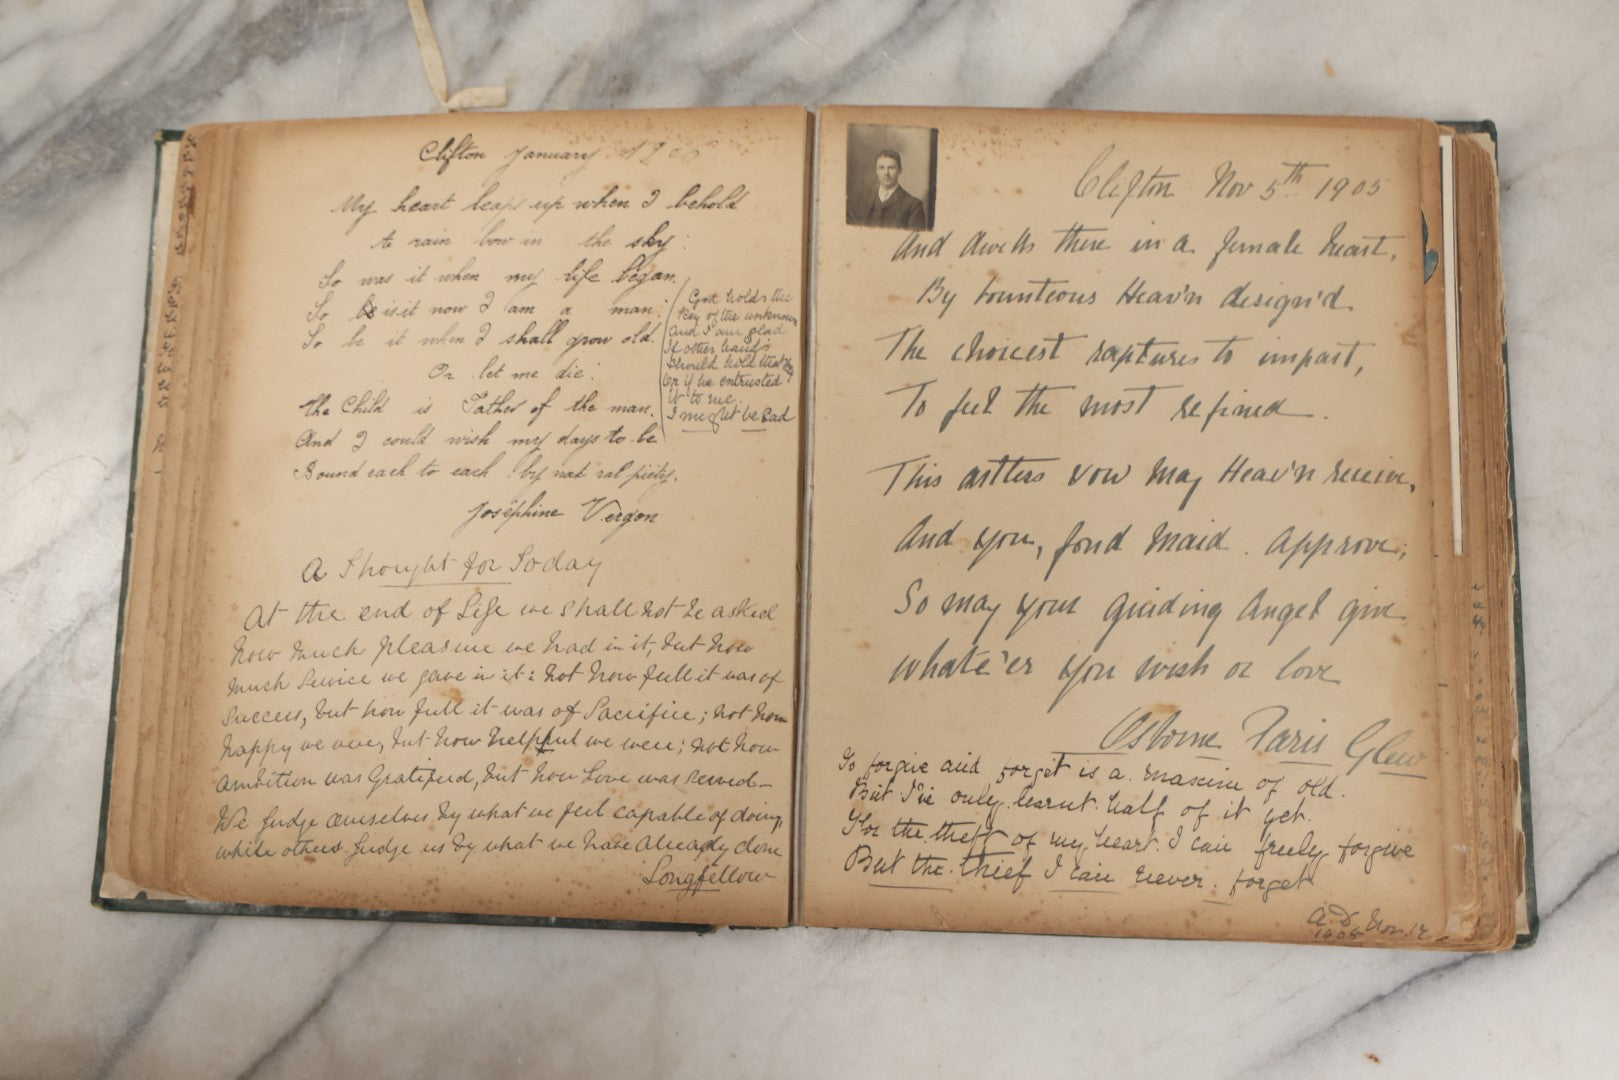 Clifton January
My heart leaps up when I behold
A rain bow in the sky:
So was it when my life began.
So is it now I am a man:
So be it when I shall grow old.
Or let me die:
The Child is Father of the man.
And I could wish my days to be
Bound each to each by nat'ral piety.
Joséphine Vergon
God holds the
Key of the unknown
And I am glad
If other hands
Should hold that Key
Or if he entrusted
it to me
I might be sad
A Thought for Today
At the end of Life we shall not be asked
how much pleasure we had in it, but how
much Service we gave in it: not how full it was of
Success, but how full it was of Sacrifice; not how
happy we were, but how helpful we were; not how
ambition was Gratified, but how Love was served—
We Judge ourselves by what we feel capable of doing,
while others Judge us by what we have Already done
Longfellow
Clifton Nov 5th 1905
And dwells there in a female heart,
By bounteous Heav'n design'd
The choicest raptures to impart,
To feel the most refined.
This artless vow may Heav'n receive,
And you, fond Maid. Approve;
So may your guiding Angel give
whate'er you wish or love
Osborne Faris Glew
To forgive and forget is a maxim of old.
But I've only learnt half of it yet.
For the theft of my heart I can freely forgive
But the thief I can never forget
A.D. Nov. 12
1905